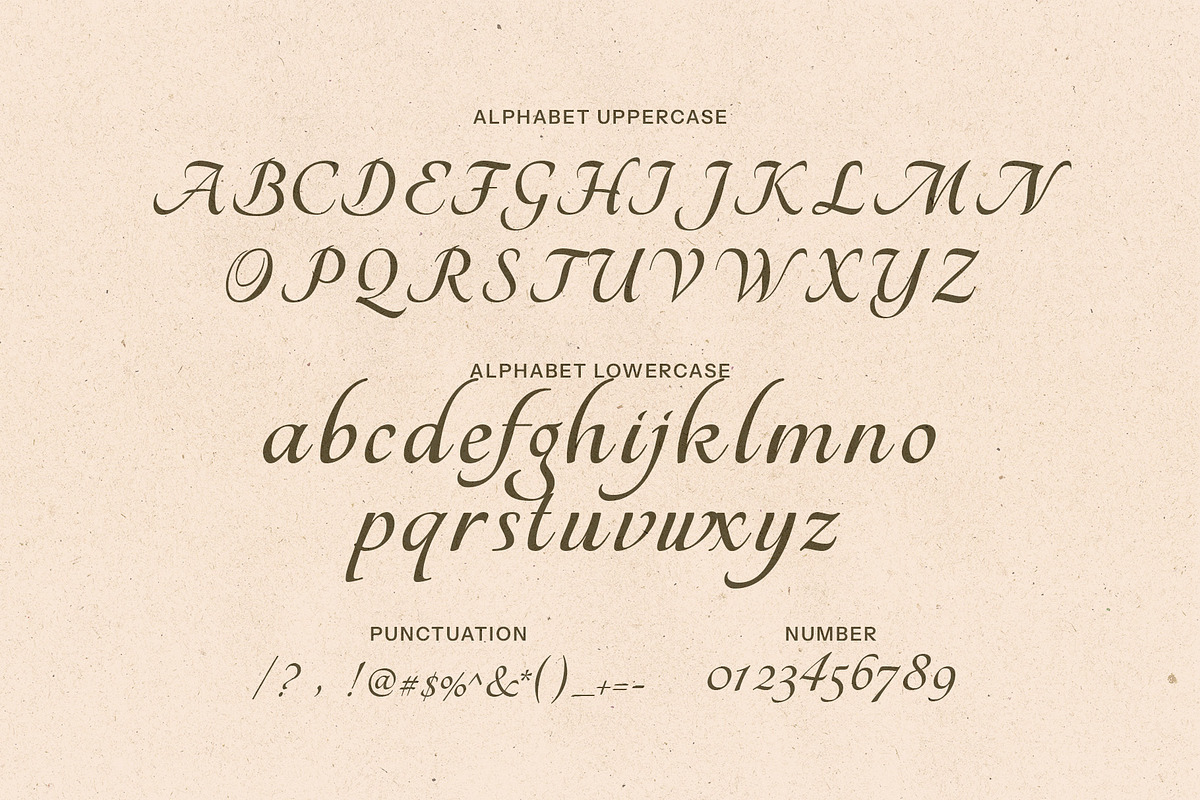 ALPHABET UPPERCASE
ABCDEFGHIJKLMN
OPQRSTUVWXYZ
ALPHABET LOWERCASE
abcdefghijklmno
pqrstuvwxyz
PUNCTUATION
/? , !@#$%^&*()_+=-
NUMBER
0123456789